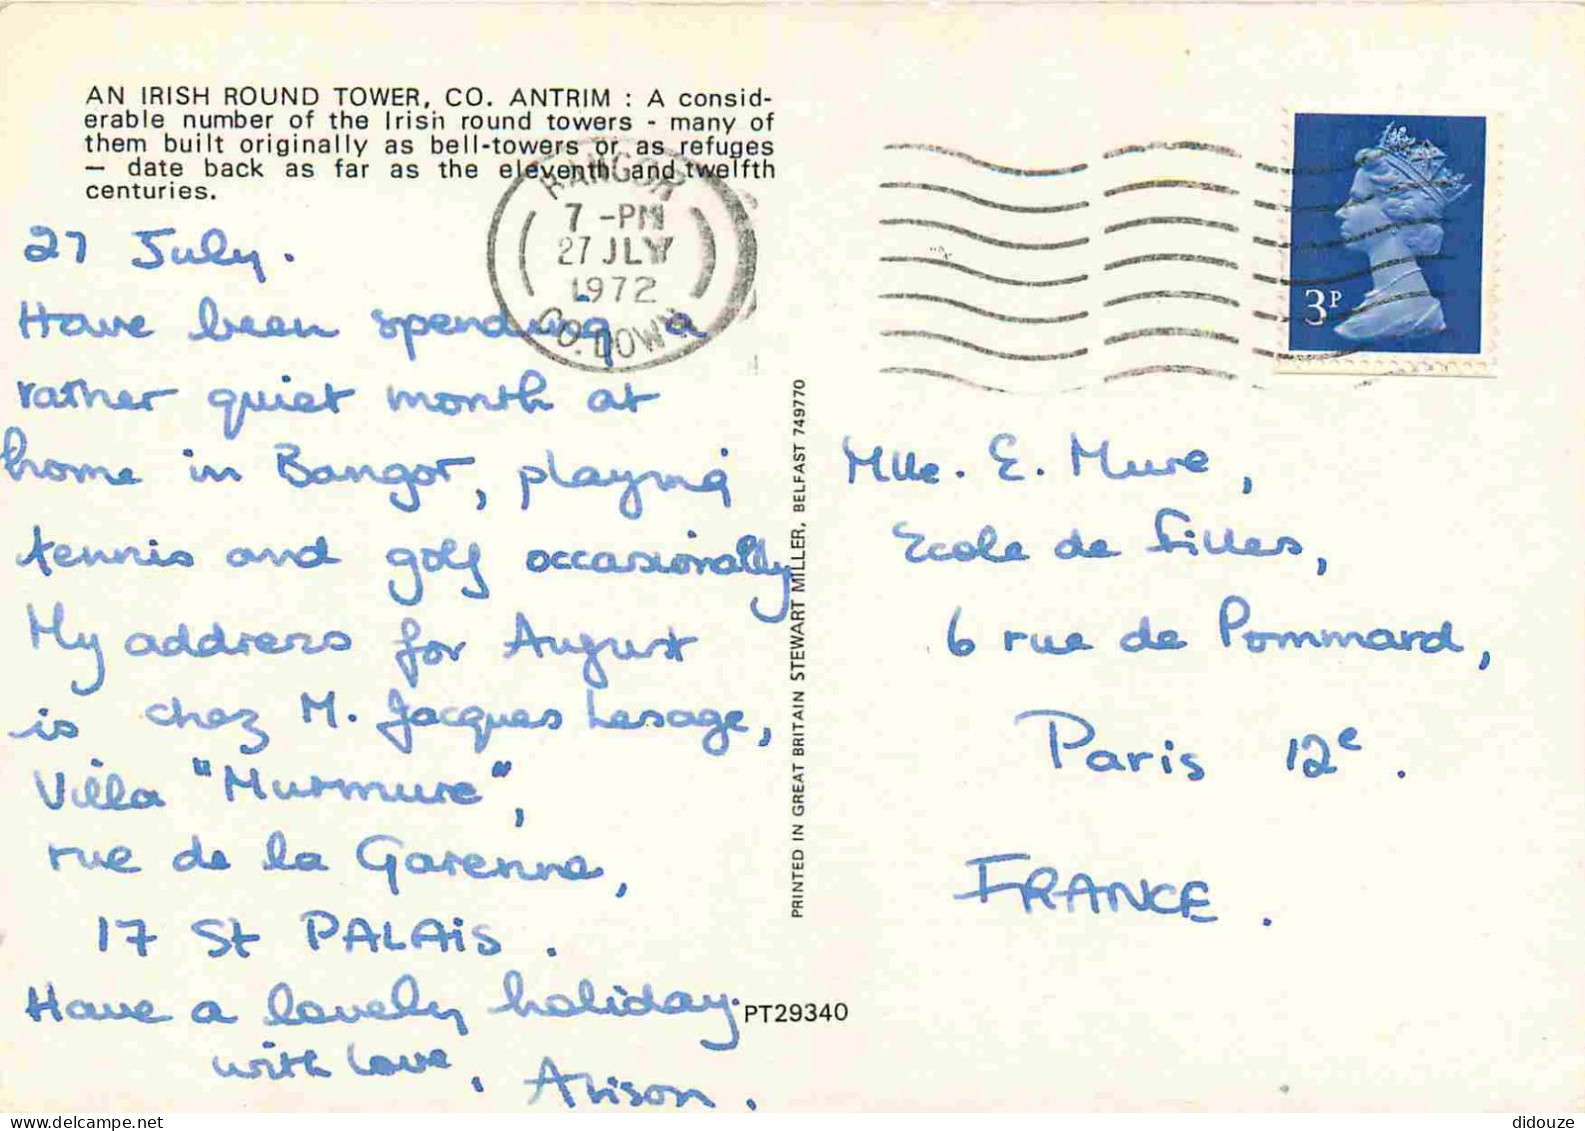 AN IRISH ROUND TOWER, CO. ANTRIM : A consid-
erable number of the Irish round towers - many of
them built originally as bell-towers or as refuges
— date back as far as the eleventh and twelfth
centuries.
BANGOR
7 -PM
27 JLY
1972
CO. DOWN
3P
27 July.
Have been spending a
rather quiet month at
home in Bangor, playing
tennis and golf occasionally
My address for August
is chez M. Jacques Lesage,
Villa "Murmure",
rue de la Garenne,
17 St PALAIS.
Have a lovely holiday.
with love, Alison.
PRINTED IN GREAT BRITAIN STEWART MILLER, BELFAST 749770
PT29340
Mlle. E. Mure,
Ecole de Filles,
6 rue de Pommard,
Paris 12e.
FRANCE.
didouze